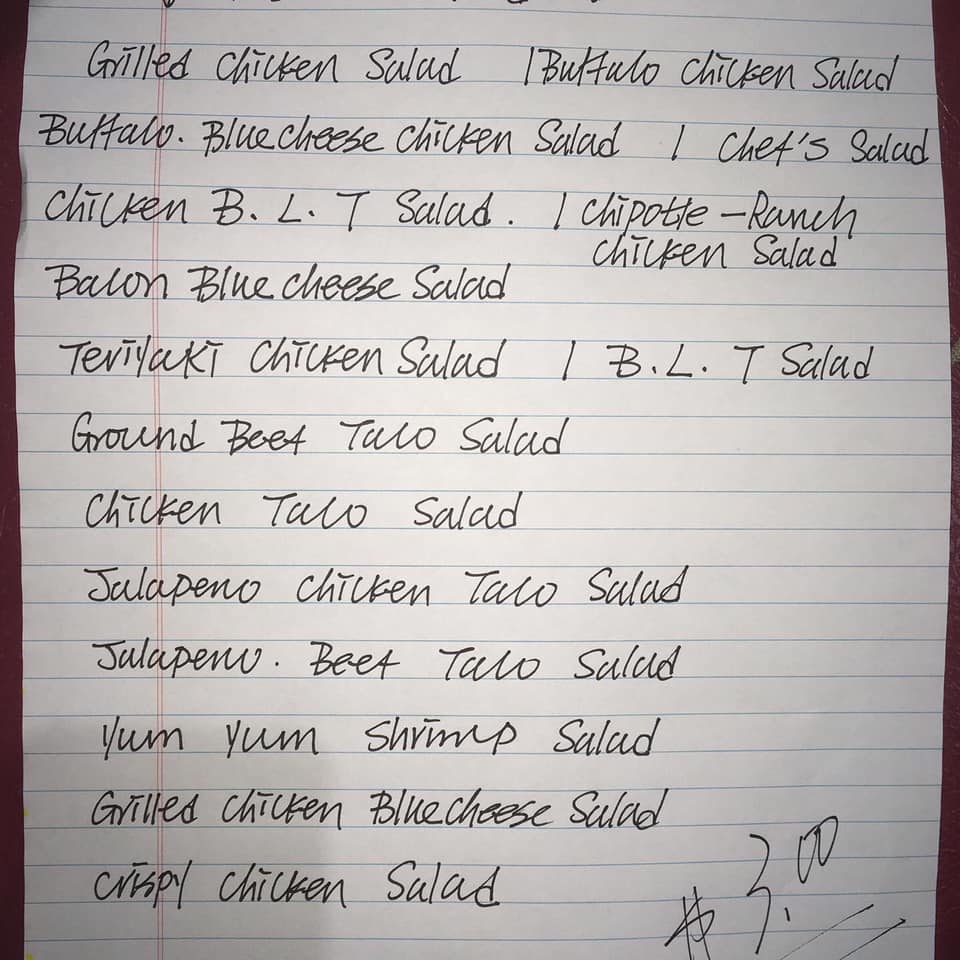 Grilled Chicken Salad | Buffalo Chicken Salad
Buffalo. Bluecheese Chicken Salad | Chef's Salad
Chicken B. L. T Salad. | Chipotle - Ranch
Chicken Salad
Bacon Blue cheese Salad
Teriyaki Chicken Salad | B.L. T Salad
Ground Beef Taco Salad
Chicken Taco Salad
Jalapeno Chicken Taco Salad
Jalapeno. Beef Taco Salad
Yum Yum Shrimp Salad
Grilled Chicken Bluecheese Salad
Crispy Chicken Salad
$ 3.00